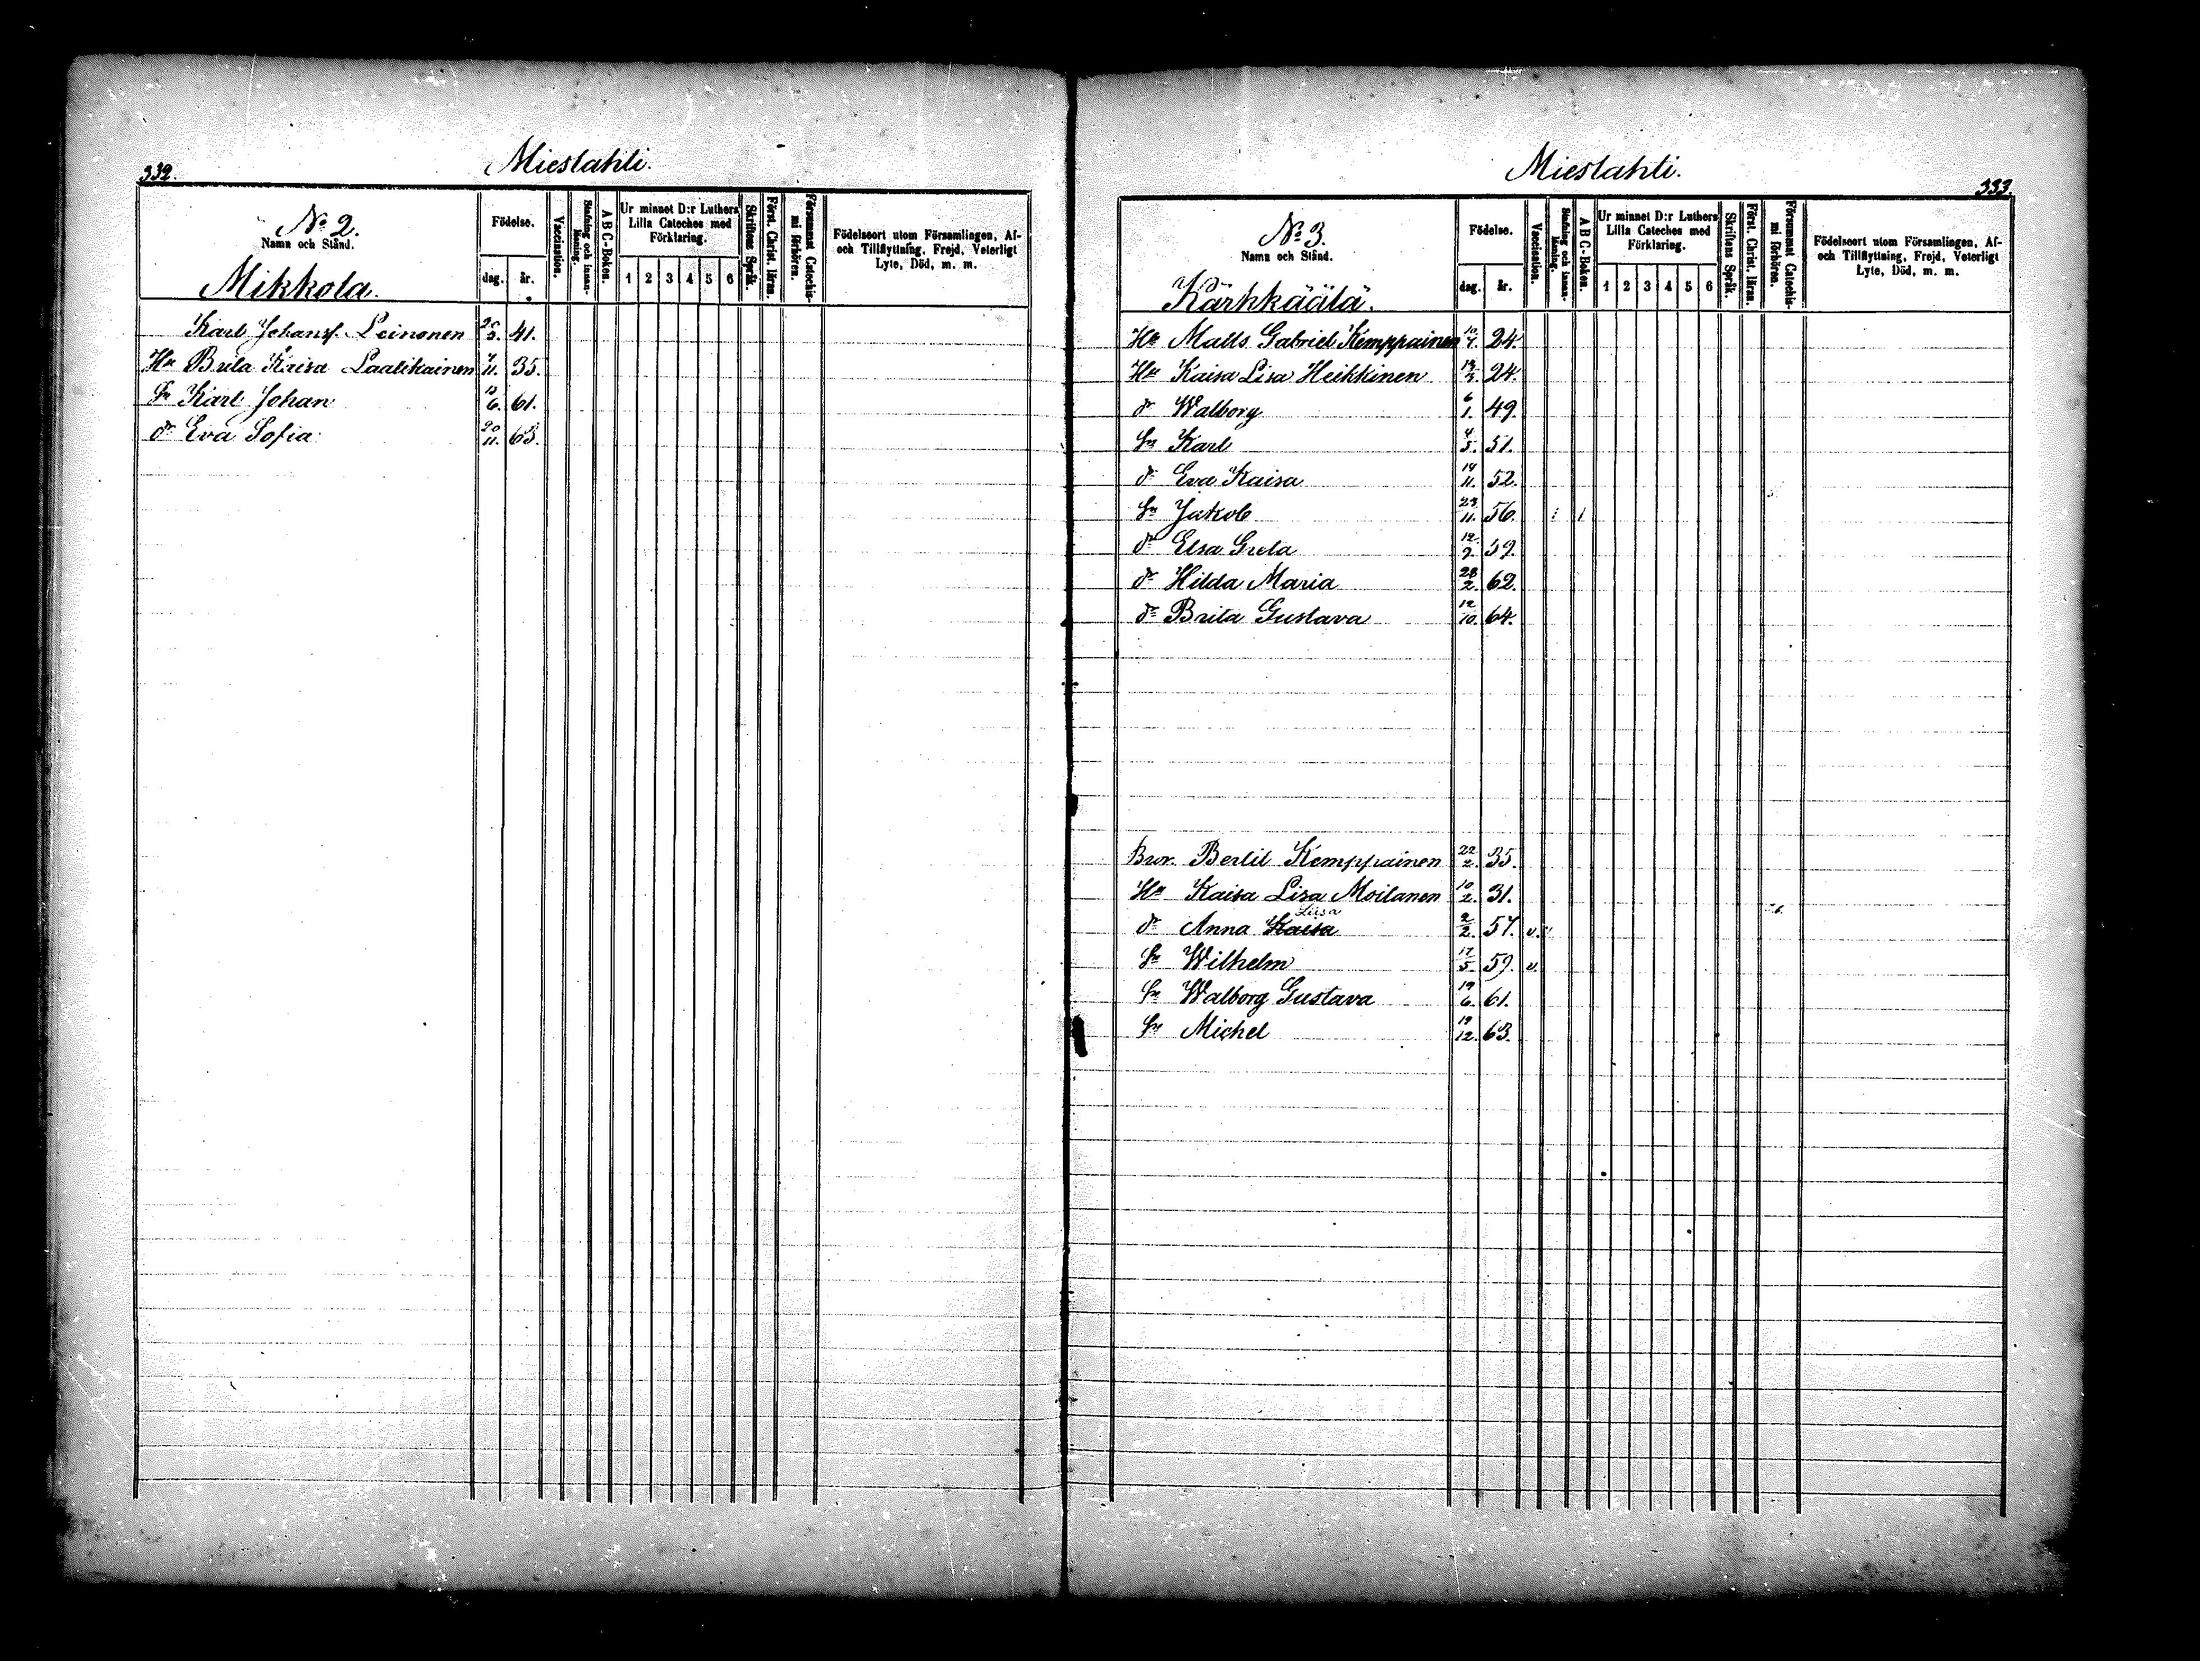 332.
Miestahti.
No 2.
Namn och Stånd.
Mikkola.
Födelse.
dag. år.
Vaccination.
Stafning och innan-läsning.
A B C-Boken.
Ur minnet D:r Luthers Lilla Cateches med Förklaring.
1 2 3 4 5 6
Skriftens Språk.
Först. Christ. läran.
Försummat Catechis-mi förhören.
Födelseort utom Församlingen, Af-
och Tillflyttning, Frejd, Veterligt
Lyte, Död, m. m.
Karl Johansf. Leinonen 20/3. 41.
Hu Brita Kaisa Laatikainen 7/11. 35.
Sn Karl Johan 13/6. 61.
dr Eva Sofia 20/11. 63.
Miestahti.
333.
No 3.
Namn och Stånd.
Kärhkäälä.
Födelse.
dag. år.
Vaccination.
Stafning och innan-läsning.
A B C-Boken.
Ur minnet D:r Luthers Lilla Cateches med Förklaring.
1 2 3 4 5 6
Skriftens Språk.
Först. Christ. läran.
Försummat Catechis-mi förhören.
Födelseort utom Församlingen, Af-
och Tillflyttning, Frejd, Veterligt
Lyte, Död, m. m.
Matts Gabriel Kemppainen 24.
Hu Kaisa Lisa Heikkinen 24.
dr Walborg 6/1. 49.
Sn Karl 4/5. 51.
dr Eva Kaisa 14/11. 52.
Sn Jakob 23/11. 56.
dr Elsa Greta 12/9. 59.
dr Hilda Maria 28/2. 62.
dr Brita Gustava 12/10. 64.
Bror. Bertil Kemppainen 22/2. 35.
Hu Kaisa Lisa Moilanen 10/2. 31.
Liisa
dr Anna Kaisa 2/2. 57. v.
Sn Wilhelm 17/5. 59. v.
Sn Walborg Gustava 19/6. 61.
Sn Michel 19/12. 63.